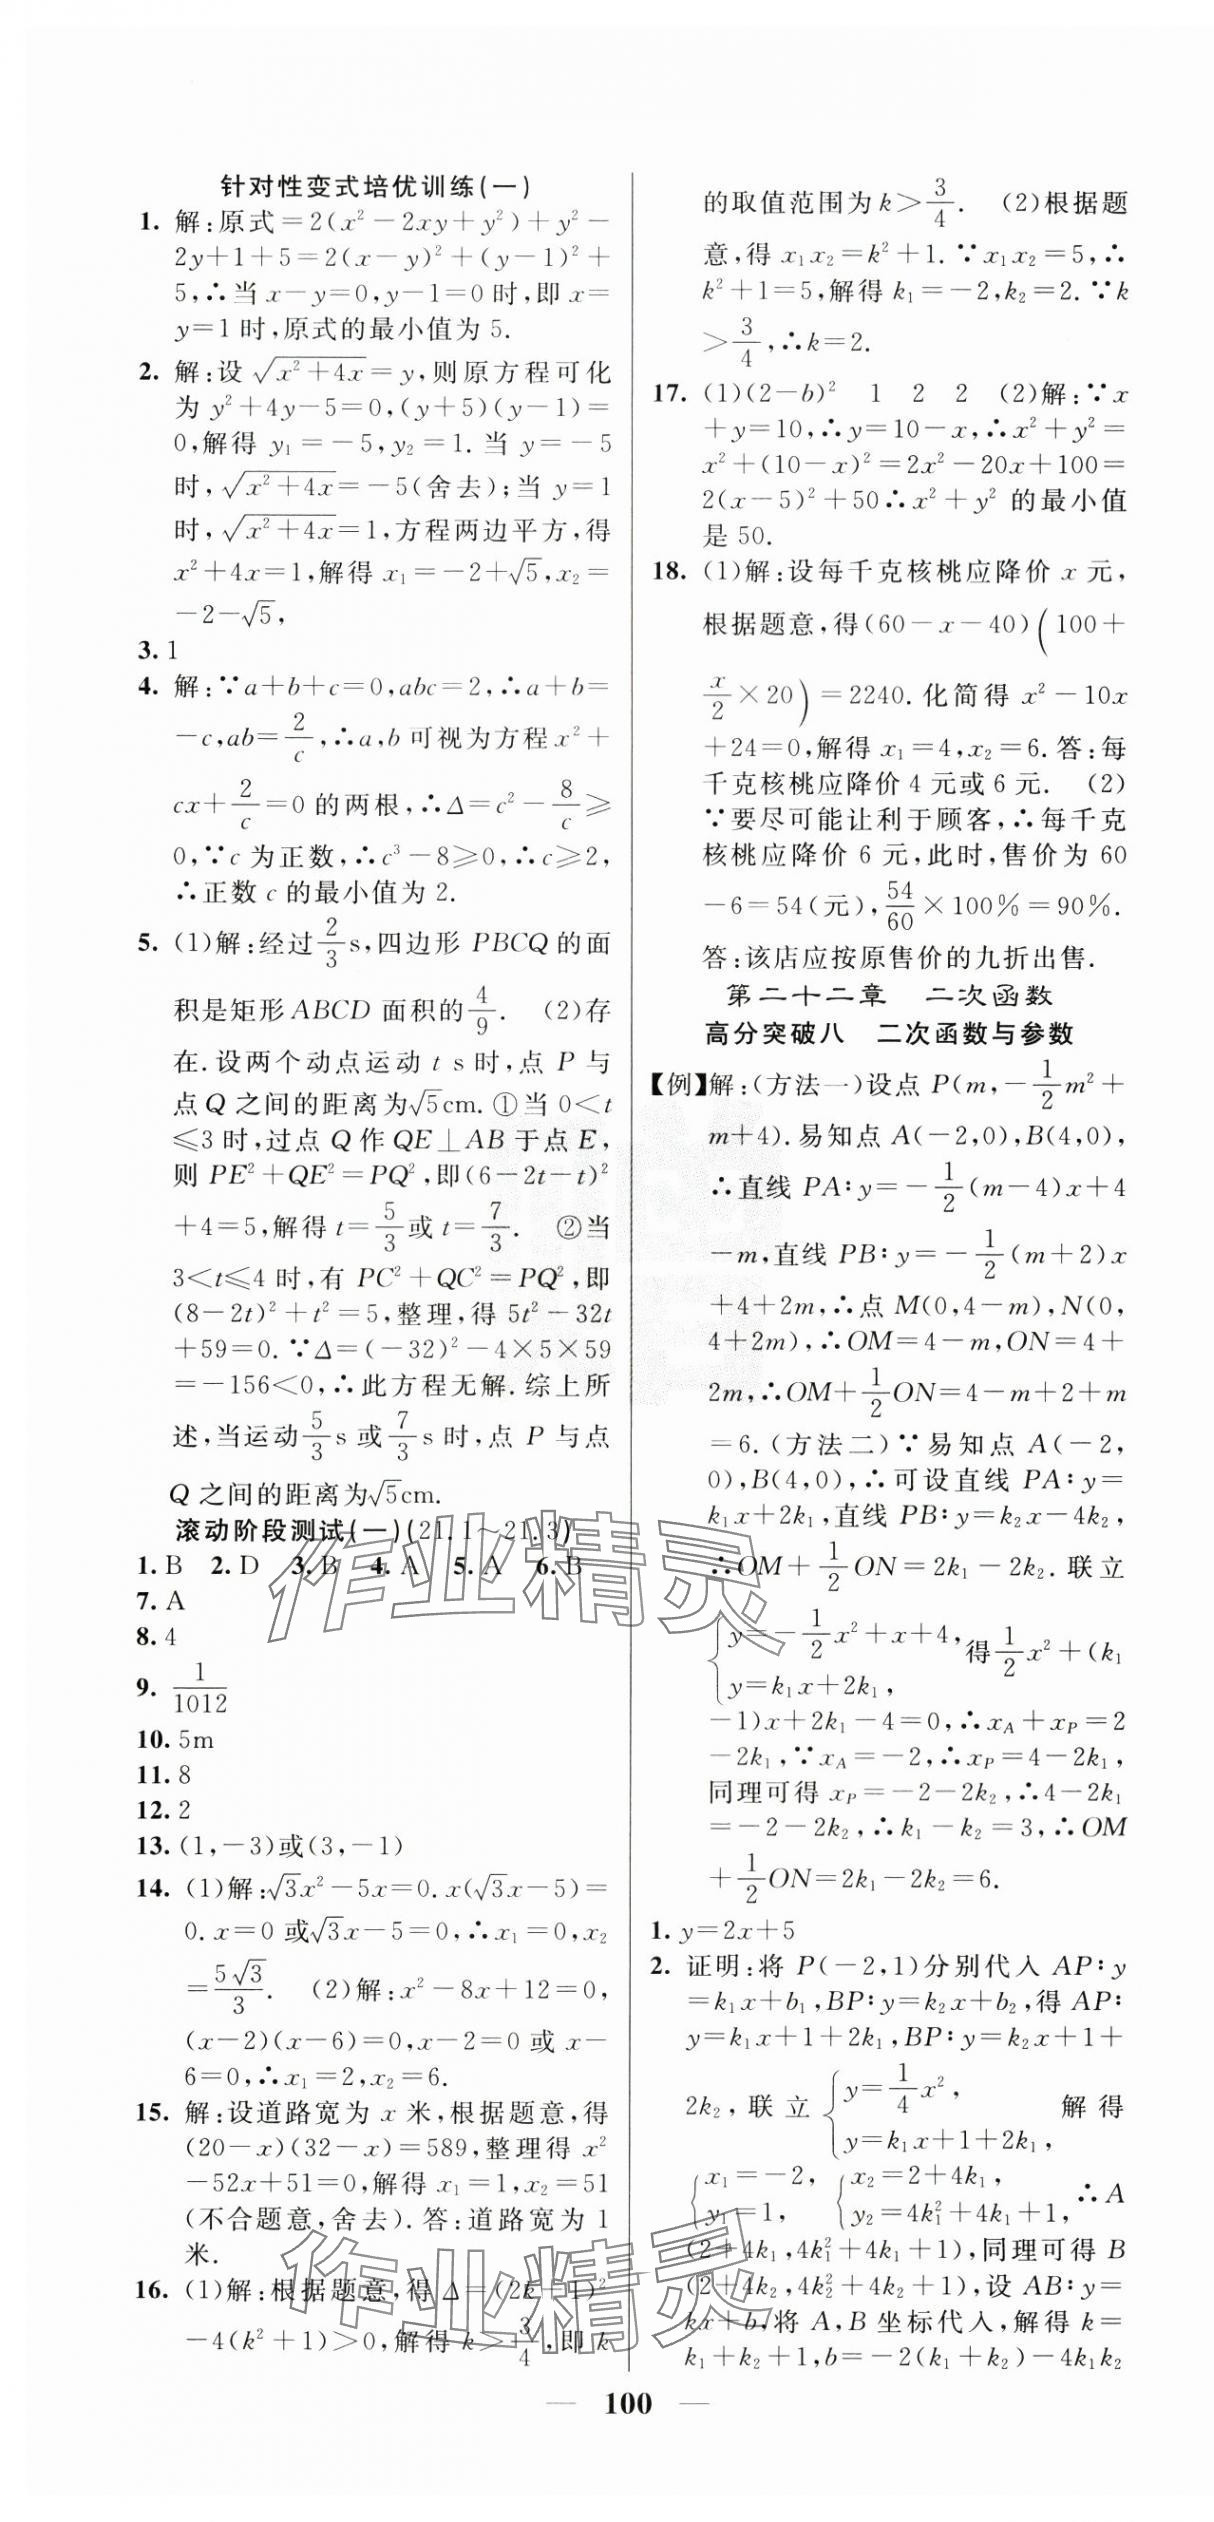 针对性变式培优训练(一)
1. 解:原式=2(x²-2xy+y²)+y²-
2y+1+5=2(x-y)²+(y-1)²+
5,∴当 x-y=0,y-1=0 时,即 x=
y=1 时,原式的最小值为 5.
2. 解:设 √(x²+4x)=y,则原方程可化
为 y²+4y-5=0,(y+5)(y-1)=
0,解得 y₁=-5,y₂=1. 当 y=-5
时,√(x²+4x)=-5(舍去);当 y=1
时,√(x²+4x)=1,方程两边平方,得
x²+4x=1,解得 x₁=-2+√5,x₂=
-2-√5,
3. 1
4. 解:∵a+b+c=0,abc=2,∴a+b=
-c,ab=2/c,∴a,b 可视为方程 x²+
cx+2/c=0 的两根,∴Δ=c²-8/c≥
0,∵c 为正数,∴c³-8≥0,∴c≥2,
∴正数 c 的最小值为 2.
5. (1)解:经过2/3s,四边形 PBCQ 的面
积是矩形 ABCD 面积的4/9. (2)存
在. 设两个动点运动 t s 时,点 P 与
点 Q 之间的距离为√5cm. ①当 0<t
≤3 时,过点 Q 作 QE⊥AB 于点 E,
则 PE²+QE²=PQ²,即(6-2t-t)²
+4=5,解得 t=5/3或 t=7/3. ②当
3<t≤4 时,有 PC²+QC²=PQ²,即
(8-2t)²+t²=5,整理,得 5t²-32t
+59=0. ∵Δ=(-32)²-4×5×59
=-156<0,∴此方程无解. 综上所
述,当运动5/3s 或7/3s 时,点 P 与点
Q 之间的距离为√5cm.
滚动阶段测试(一)(21.1~21.3)
1. B 2. D 3. B 4. A 5. A 6. B
7. A
8. 4
9. 1/1012
10. 5m
11. 8
12. 2
13. (1,-3)或(3,-1)
14. (1)解:√3x²-5x=0. x(√3x-5)=
0. x=0 或√3x-5=0,∴x₁=0,x₂
=5√3/3. (2)解:x²-8x+12=0,
(x-2)(x-6)=0,x-2=0 或 x-
6=0,∴x₁=2,x₂=6.
15. 解:设道路宽为 x 米,根据题意,得
(20-x)(32-x)=589,整理得 x²
-52x+51=0,解得 x₁=1,x₂=51
(不合题意,舍去). 答:道路宽为 1
米.
16. (1)解:根据题意,得 Δ=(2k+1)²
-4(k²+1)>0,解得 k>3/4,即 k
的取值范围为 k>3/4. (2)根据题
意,得 x₁x₂=k²+1. ∵x₁x₂=5,∴
k²+1=5,解得 k₁=-2,k₂=2. ∵k
>3/4,∴k=2.
17. (1)(2-b)² 1 2 2 (2)解:∵x
+y=10,∴y=10-x,∴x²+y²=
x²+(10-x)²=2x²-20x+100=
2(x-5)²+50∴x²+y² 的最小值
是 50.
18. (1)解:设每千克核桃应降价 x 元,
根据题意,得(60-x-40)(100+
x/2×20)=2240. 化简得 x²-10x
+24=0,解得 x₁=4,x₂=6. 答:每
千克核桃应降价 4 元或 6 元. (2)
∵要尽可能让利于顾客,∴每千克
核桃应降价 6 元,此时,售价为 60
-6=54(元),54/60×100%=90%.
答:该店应按原售价的九折出售.
第二十二章 二次函数
高分突破八 二次函数与参数
【例】解:(方法一)设点 P(m,-1/2m²+
m+4). 易知点 A(-2,0),B(4,0),
∴直线 PA:y=-1/2(m-4)x+4
-m,直线 PB:y=-1/2(m+2)x
+4+2m,∴点 M(0,4-m),N(0,
4+2m),∴OM=4-m,ON=4+
2m,∴OM+1/2ON=4-m+2+m
=6. (方法二)∵易知点 A(-2,
0),B(4,0),∴可设直线 PA:y=
k₁x+2k₁,直线 PB:y=k₂x-4k₂,
∴OM+1/2ON=2k₁-2k₂. 联立
{y=-1/2x²+x+4, y=k₁x+2k₁, 得1/2x²+(k₁
-1)x+2k₁-4=0,∴x_A+x_P=2
-2k₁,∵x_A=-2,∴x_P=4-2k₁,
同理可得 x_P=-2-2k₂,∴4-2k₁
=-2-2k₂,∴k₁-k₂=3,∴OM
+1/2ON=2k₁-2k₂=6.
1. y=2x+5
2. 证明:将 P(-2,1)分别代入 AP:y
=k₁x+b₁,BP:y=k₂x+b₂,得 AP:
y=k₁x+1+2k₁,BP:y=k₂x+1+
2k₂,联立 {y=1/4x², y=k₁x+1+2k₁, 解得
{x₁=-2, y₁=1, {x₂=2+4k₁, y₂=4k₁²+4k₁+1, ∴A
(2+4k₁,4k₁²+4k₁+1),同理可得 B
(2+4k₂,4k₂²+4k₂+1),设 AB:y=
kx+b,将 A,B 坐标代入,解得 k=
k₁+k₂+1,b=-2(k₁+k₂)-4k₁k₂
— 100 —
作业精灵
作业精灵